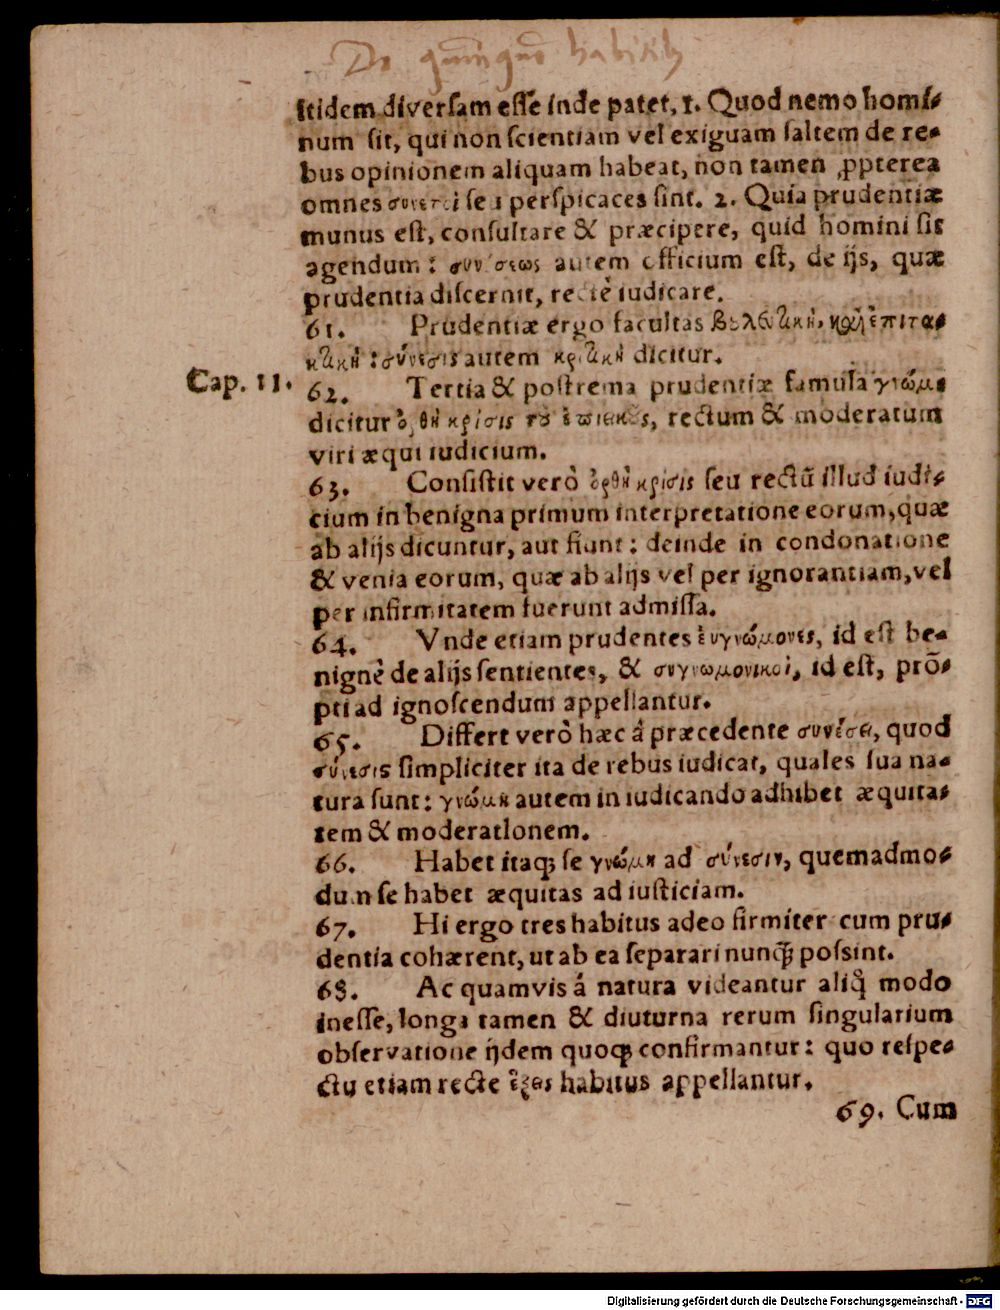 De quinque habitib
itidem diversam esse inde patet, 1. Quod nemo homi-
num sit, qui non scientiam vel exiguam saltem de re-
bus opinionem aliquam habeat, non tamen ꝓpterea
omnes συνετοὶ seu perspicaces sint. 2. Quia prudentiæ
munus est, consultare & præcipere, quid homini sit
agendum: συνέσεως autem officium est, de ijs, quæ
prudentia discernit, rectè iudicare.
61. Prudentiæ ergo facultas βελευτικὴ, καὶ ἐπιτα-
κτικὴ: σύνεσις autem κριτικὴ dicitur.
Cap. 11. 62. Tertia & postrema prudentiæ famula γνώμη
dicitur ὀρθὴ κρίσις τοῦ ἐπιεικοῦς, rectum & moderatum
viri æqui iudicium.
63. Consistit verò ὀρθὴ κρίσις seu rectū illud iudi-
cium in benigna primum interpretatione eorum, quæ
ab alijs dicuntur, aut fiunt: deinde in condonatione
& venia eorum, quæ ab alijs vel per ignorantiam, vel
per infirmitatem fuerunt admissa.
64. Vnde etiam prudentes ἐυγνώμονες, id est be-
nignè de alijs sentientes, & συγνωμονικοὶ, id est, prō-
pti ad ignoscendum appellantur.
65. Differt verò hæc á præcedente συνέσει, quod
σύνεσις simpliciter ita de rebus iudicat, quales sua na-
tura sunt: γνώμη autem in iudicando adhibet æquita-
tem & moderationem.
66. Habet itaq; se γνώμη ad σύνεσιν, quemadmo-
dum se habet æquitas ad iusticiam.
67. Hi ergo tres habitus adeo firmiter cum pru-
dentia cohærent, ut ab ea separari nunq̃ possint.
68. Ac quamvis á natura videantur aliq̊ modo
inesse, longa tamen & diuturna rerum singularium
observatione ijdem quoq; confirmantur: quo respe-
ctu etiam recte ἕξεις habitus appellantur.
69. Cum
Digitalisierung gefördert durch die Deutsche Forschungsgemeinschaft - DFG